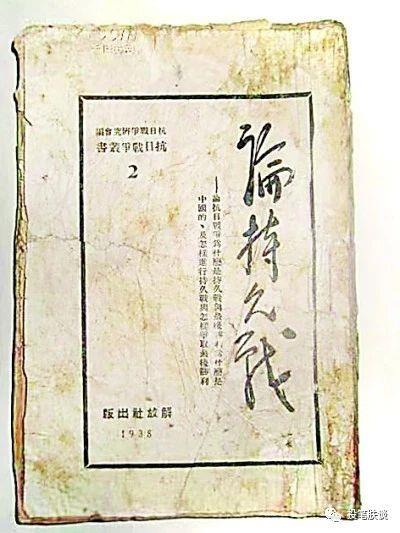 論持久戰
——論抗日戰爭爲什麼是持久戰與最後勝利爲什麼是
中國的、及怎樣進行持久戰與怎樣爭取最後勝利
抗日戰爭研究會編
抗日戰爭叢書
2
解放社出版
1938
投笔肤谈